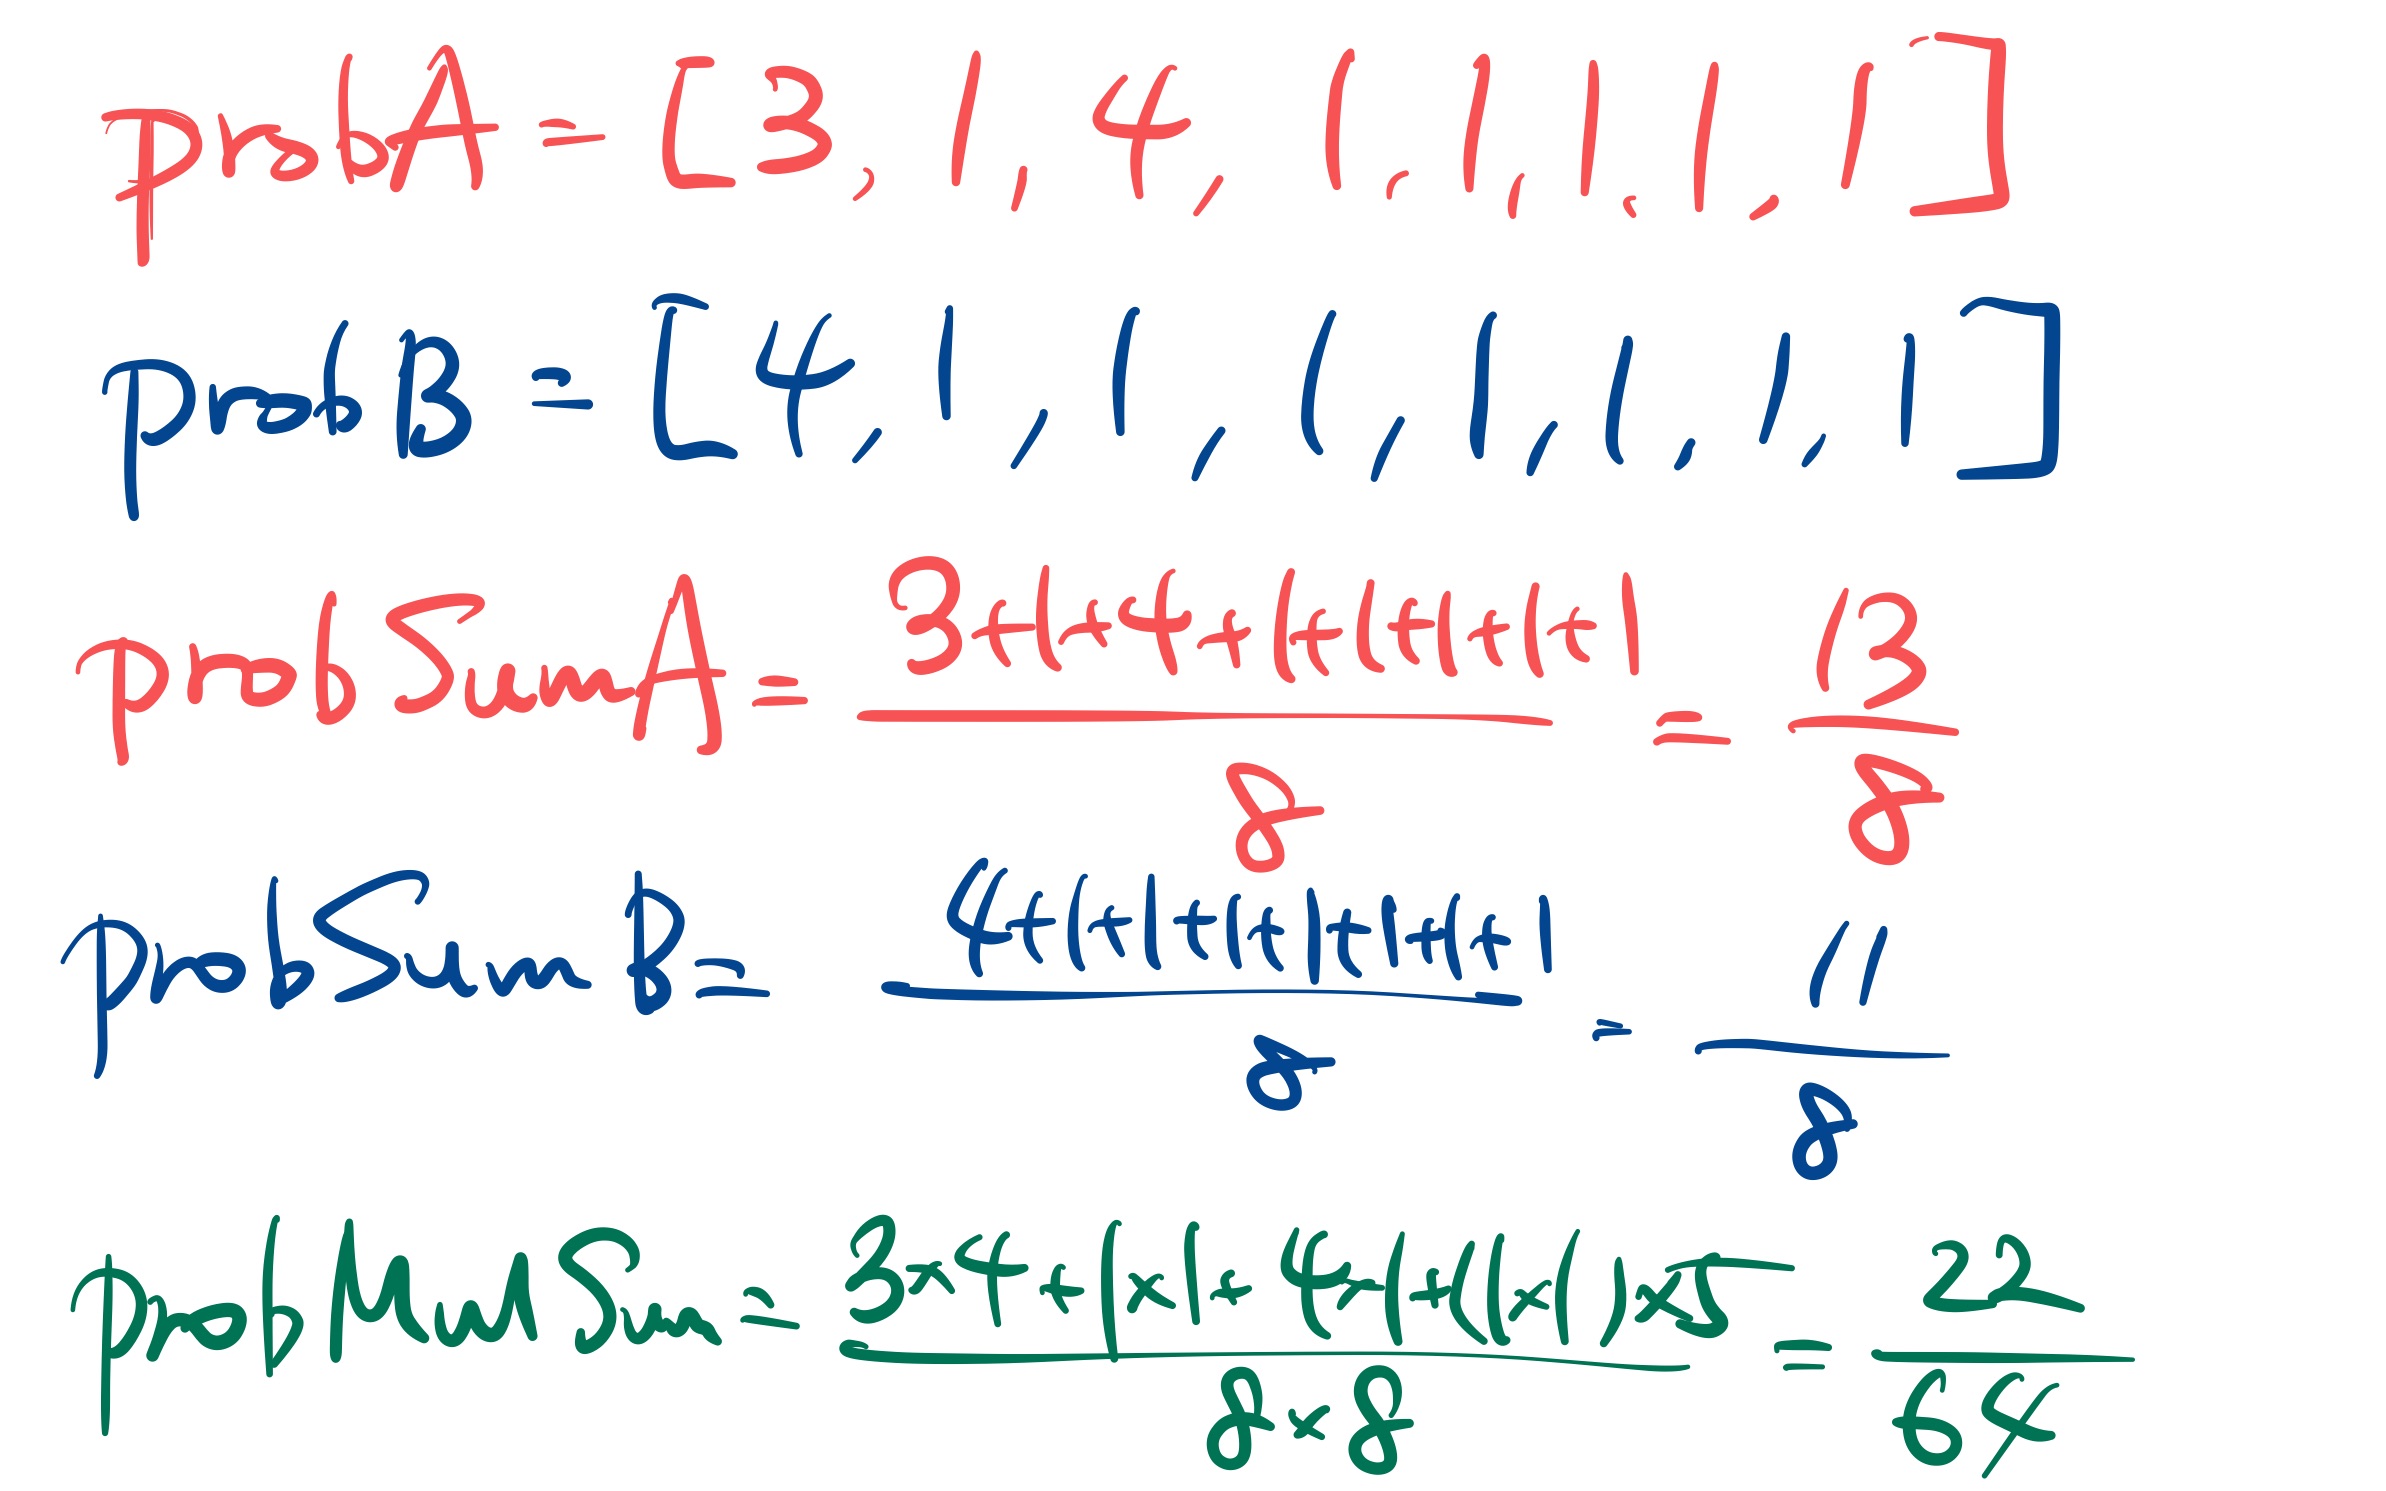 probA = [3, 1, 4, 1, 1, 1, 1, 1]
probB = [4, 1, 1, 1, 1, 1, 1, 1]
probSumA = 3+1+4+1+1+1+1+1 / 8 = 13/8
probSumB = 4+1+1+1+1+1+1+1 / 8 = 11/8
probMulSum = 3×4+1×1+4×1+(1×1)×5 / 8×8 = 22/64